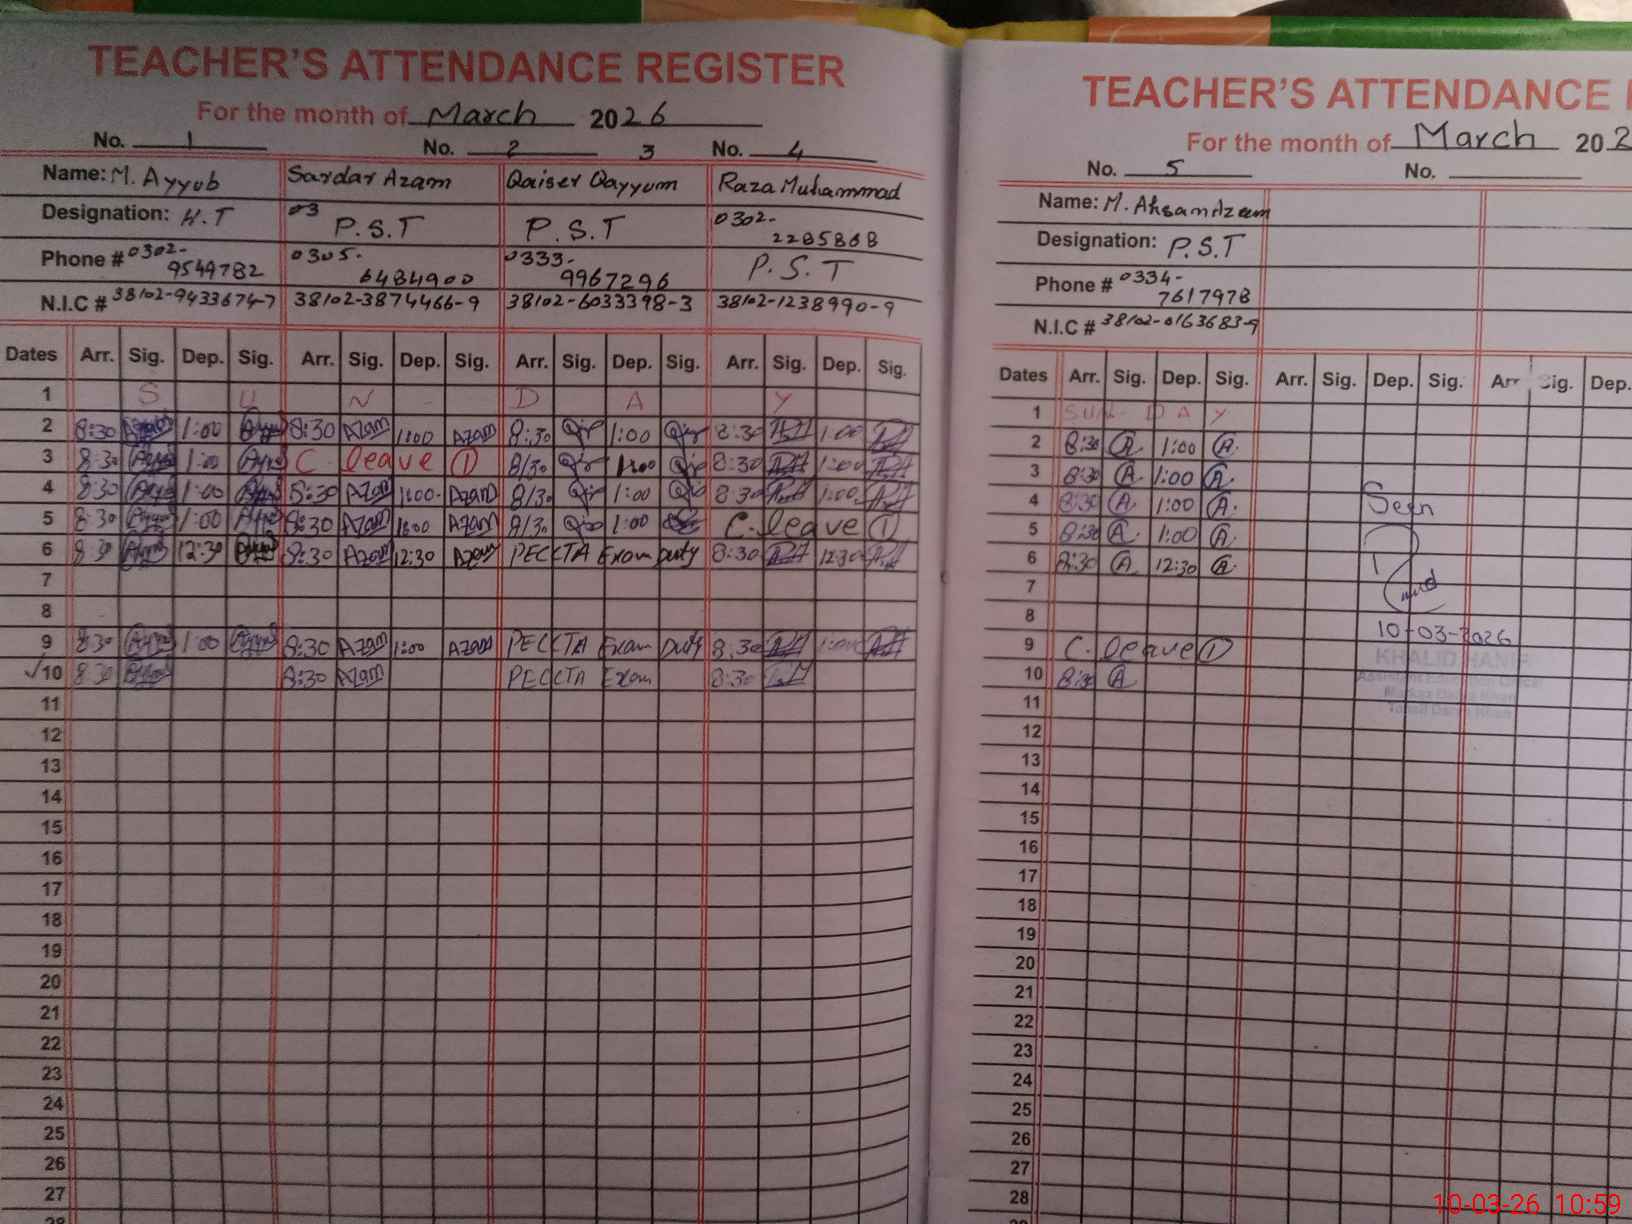 TEACHER'S ATTENDANCE REGISTER
For the month of March 2026
No. 1 No. 2 3 No. 4
Name: M. Ayyub Sardar Azam Qaiser Qayyum Raza Muhammad
Designation: H.T 03 P.S.T P.S.T 0302-2285868
Phone # 0302-9549782 0305-6484900 0333-9967296 P.S.T
N.I.C # 38102-9433674-7 38102-3874466-9 38102-6033398-3 38102-1238990-9
Dates Arr. Sig. Dep. Sig. Arr. Sig. Dep. Sig. Arr. Sig. Dep. Sig. Arr. Sig. Dep. Sig.
1 S U N - D A Y
2 8:30 1:00 8:30 Azam 1:00 Azam 8:30 1:00 8:30 1:00
3 8:30 1:00 C leave 1 8/30 1:00 8:30 1:00
4 8:30 1:00 8:30 Azam 1:00 Azam 8/30 1:00 8:30 1:00
5 8:30 1:00 8:30 Azam 1:00 Azam 8/30 1:00 C. leave 1
6 8:30 12:30 8:30 Azam 12:30 Azam PECCTA Exam Duty 8:30 12:30
7
8
9 8:30 1:00 8:30 Azam 1:00 Azam PECCTA Exam Duty 8:30 1:00
√10 8:30 8:30 Azam PECCTA Exam 8:30
11
12
13
14
15
16
17
18
19
20
21
22
23
24
25
26
27
TEACHER'S ATTENDANCE
For the month of March 202
No. 5 No.
Name: M. Ahsan Azeem
Designation: P.S.T
Phone # 0334-7617978
N.I.C # 38102-0163683-9
Dates Arr. Sig. Dep. Sig. Arr. Sig. Dep. Sig. Arr Sig. Dep.
1 SUN - D A Y
2 8:30 A 1:00 A
3 8:30 A 1:00 A
4 8:30 A 1:00 A
5 8:30 A 1:00 A
6 8:30 A 12:30 A
7
8
9 C. leave 1
10 8:30 A
11
12
13
14
15
16
17
18
19
20
21
22
23
24
25
26
27
28
Seen
10-03-2026
KHALID HANIF
10-03-26 10:59